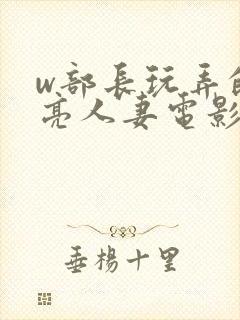 w部长玩弄
亮人妻電影
垂楊十里